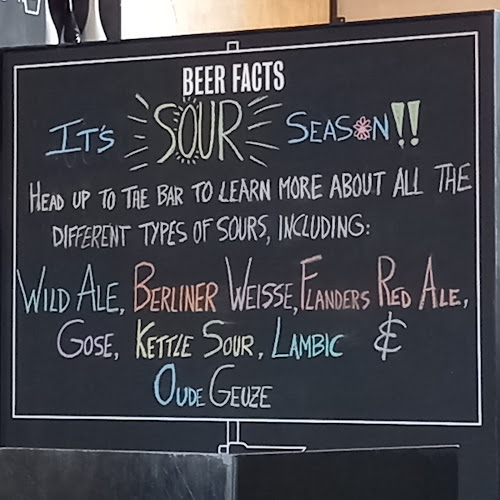 BEER FACTS
IT'S SOUR SEASON!!
HEAD UP TO THE BAR TO LEARN MORE ABOUT ALL THE
DIFFERENT TYPES OF SOURS, INCLUDING:
WILD ALE, BERLINER WEISSE, FLANDERS RED ALE,
GOSE, KETTLE SOUR, LAMBIC &
OUDE GEUZE